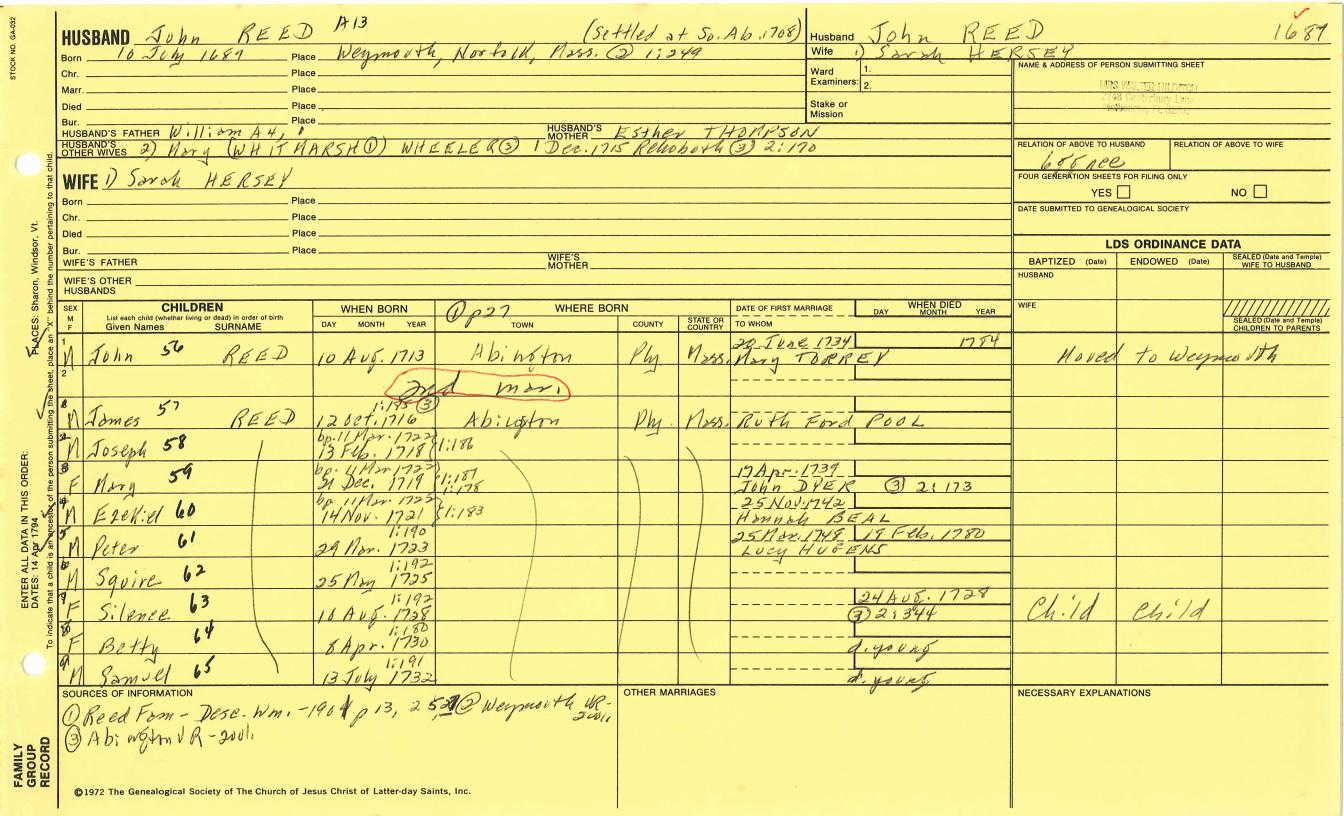 STOCK NO. GA-032
HUSBAND John REED A13 (Settled at So. Ab. 1708)
Born 10 July 1687 Place Weymouth, Norfold, Mass. (2) 1:249
Chr. Place
Marr. Place
Died Place
Bur. Place
HUSBAND'S FATHER William A4, HUSBAND'S MOTHER Esther THOMPSON
HUSBAND'S OTHER WIVES 2) Mary (WHITMARSH (1)) WHEELER (3) 1 Dec. 1715 Rehoboth (3) 2:170
WIFE 1) Sarah HERSEY
Born Place
Chr. Place
Died Place
Bur. Place
WIFE'S FATHER WIFE'S MOTHER
WIFE'S OTHER HUSBANDS
Husband John REED 1687
Wife 1) Sarah HERSEY
Ward Examiners: 1.
2.
Stake or Mission
NAME & ADDRESS OF PERSON SUBMITTING SHEET
RELATION OF ABOVE TO HUSBAND RELATION OF ABOVE TO WIFE
FOUR GENERATION SHEETS FOR FILING ONLY
YES NO
DATE SUBMITTED TO GENEALOGICAL SOCIETY
LDS ORDINANCE DATA
BAPTIZED (Date) ENDOWED (Date) SEALED (Date and Temple) WIFE TO HUSBAND
HUSBAND
WIFE
SEALED (Date and Temple) CHILDREN TO PARENTS
SEX M F
CHILDREN
List each child (whether living or dead) in order of birth
Given Names SURNAME
WHEN BORN DAY MONTH YEAR
(1) p27 WHERE BORN TOWN COUNTY STATE OR COUNTRY
DATE OF FIRST MARRIAGE TO WHOM
WHEN DIED DAY MONTH YEAR
1 M John 56 REED 10 Aug. 1713 Abington Ply Mass. 20 June 1734 1784
Mary TORREY Moved to Weymouth
2 2nd mar.
1:185 (3)
M James 57 REED 12 Oct. 1716 Abington Ply. Mass. Ruth Ford POOL
bp. 11 Mar. 1722
2 M Joseph 58 13 Feb. 1718 1:186
bp. 11 Mar. 1722 1:187 17 Apr. 1739
3 F Mary 59 31 Dec. 1719 1:178 John DYER (3) 2:173
bp. 11 Mar. 1722 25 Nov. 1742
4 M Ezekiel 60 14 Nov. 1721 1:183 Hannah BEAL
1:190 25 Mar. 1748 19 Feb. 1780
5 M Peter 61 29 Mar. 1723 Lucy HUGENS
1:192
6 M Squire 62 25 May 1725
1:192 24 Aug. 1728
7 F Silence 63 16 Aug. 1728 (3) 2:344 Child Child
1:180
8 F Betty 64 8 Apr. 1730 d. young
1:191
9 M Samuel 65 13 July 1732 d. young
SOURCES OF INFORMATION
(1) Reed Fam - Desc. Wm. - 1901 p 13, 25, 27 (2) Weymouth VR-
(3) Abington VR -
OTHER MARRIAGES
NECESSARY EXPLANATIONS
©1972 The Genealogical Society of The Church of Jesus Christ of Latter-day Saints, Inc.
FAMILY GROUP RECORD
ENTER ALL DATA IN THIS ORDER:
DATES: 14 Apr 1794
PLACES: Sharon, Windsor, Vt.
To indicate that a child is an ancestor of the person submitting the sheet, place an "X" behind the number pertaining to that child.